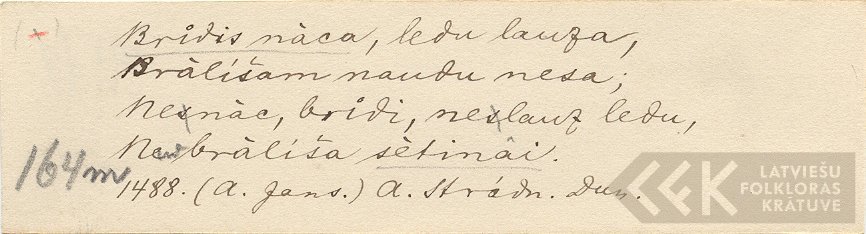 (x)
Brīdis nāca, ledu lauza,
Brālīšam naudu nesa;
Nesnāc, brīdi, neslauz ledu,
Nav brālīša sētinâi.
164m
1488. (A. Jans.) A. Strādn. Dun.
LATVIEŠU
FOLKLORAS
KRĀTUVE